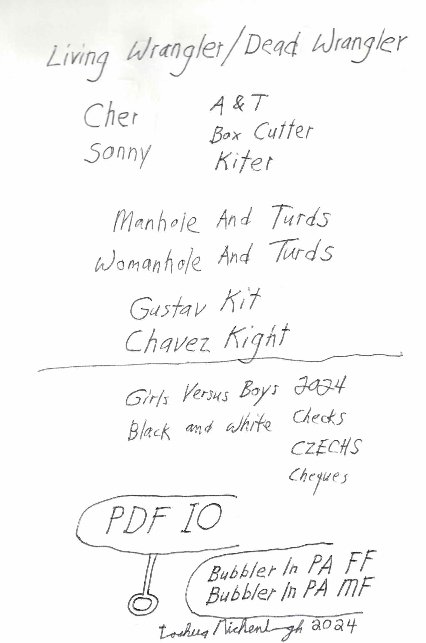 Living Wrangler/Dead Wrangler
Cher A & T
Sonny Box Cutter
Kiter
Manhole And Turds
Womanhole And Turds
Gustav Kit
Chavez Kight
Girls Versus Boys 2024
Black and White Checks
CZECHS
Cheques
PDF IO
Bubbler In PA FF
Bubbler In PA MF
2024